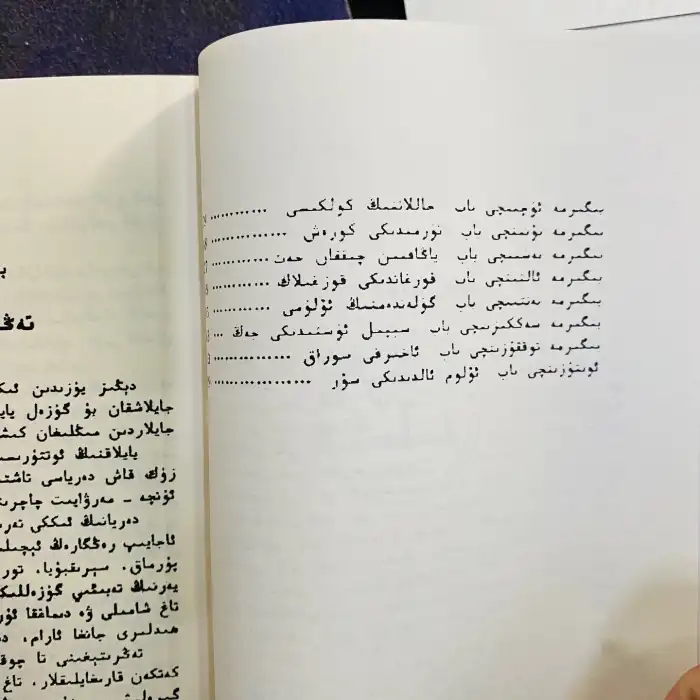 يىگىرمە ئۈچىنچى باب جاللاتنىڭ كۆلەڭگىسى ............
يىگىرمە تۆتىنچى باب تۈرمىدىكى كۈرەش ...............
يىگىرمە بەشىنچى باب ياڭاقتىن چىققان خەت ...........
يىگىرمە ئالتىنچى باب قورغاندىكى قوزغىلاڭ ...........
يىگىرمە يەتتىنچى باب گۈلەندەمنىڭ ئۆلۈمى ...........
يىگىرمە سەككىزىنچى باب سېپىل ئۈستىدىكى جەڭ ...
يىگىرمە توققۇزىنچى باب ئاخىرقى سوراق ...............
ئوتتۇزىنچى باب ئۆلۈم ئالدىدىكى سۆز ...................
دېڭىز يۈزىدىن ئىككى
جايلاشقان بۇ گۈزەل يايلا
جايلاردىن مىڭلىغان كىشى
يايلاقنىڭ ئوتتۇرىسى
زۈك قاش دەرياسى تاشتى
ئۈنچە - مەرۋايىت چاچرىتى
دەريانىڭ ئىككى تەرى
ئاجايىپ رەڭگارەڭ ئېچىلى
پۇرماق، سېرىقبۇيا، تور
يەرنىڭ تەبىئىي گۈزەللىكى
تاغ شامىلى ۋە دىماغقا ئۇر
ھىدلىرى جانغا ئارام، د
تەڭرىتېغىنى تا چوققى
كەتكەن قارىغايلىقلار، تاغ